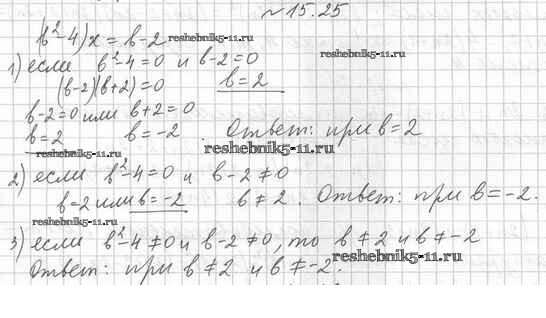 №15.25
(b²-4)x = b-2 reshebnik5-11.ru
reshebnik5-11.ru
1) если b²-4=0 и b-2=0
(b-2)(b+2)=0 b=2
b-2=0 или b+2=0
b=2 b=-2. Ответ: при b=2
reshebnik5-11.ru reshebnik5-11.ru
2) если b²-4=0 и b-2≠0
b=2 или b=-2 b≠2. Ответ: при b=-2.
reshebnik5-11.ru
3) если b²-4≠0 и b-2≠0, то b≠2 и b≠-2
reshebnik5-11.ru
Ответ: при b≠2 и b≠-2.